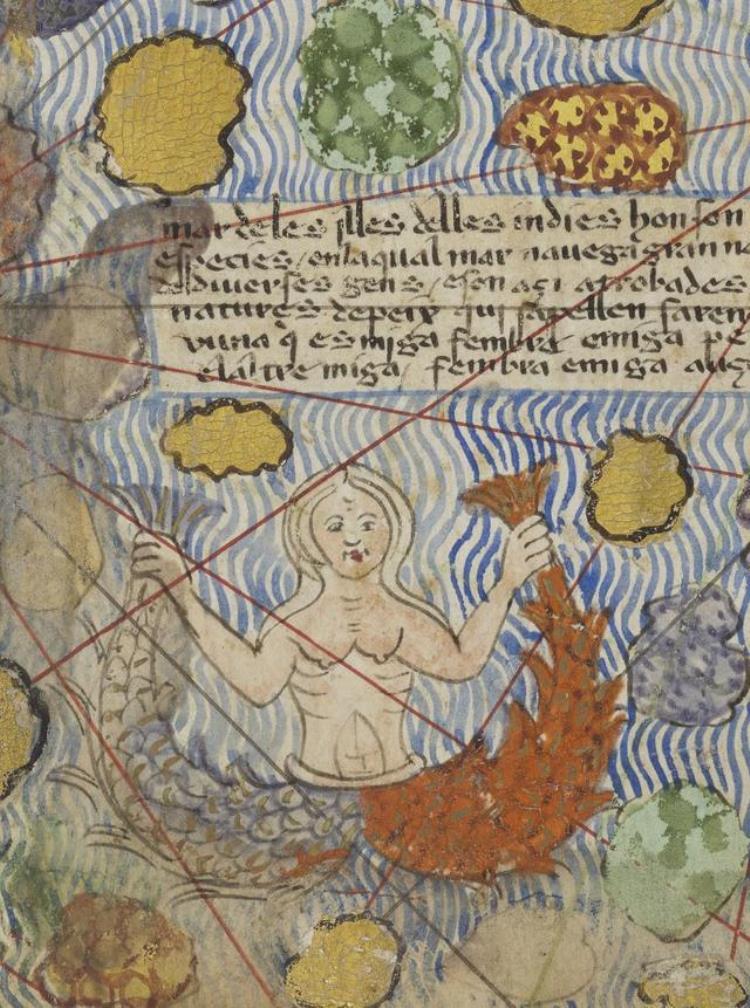 mar de les illes delles indies hon son
especies / en la qual mar nauega gran na
diuerses gens / e son açi atrobades
natures de peix qui sapellen saren
vuna q̃ es miga fembra e miga pe
e laltre miga / fembra e miga auç